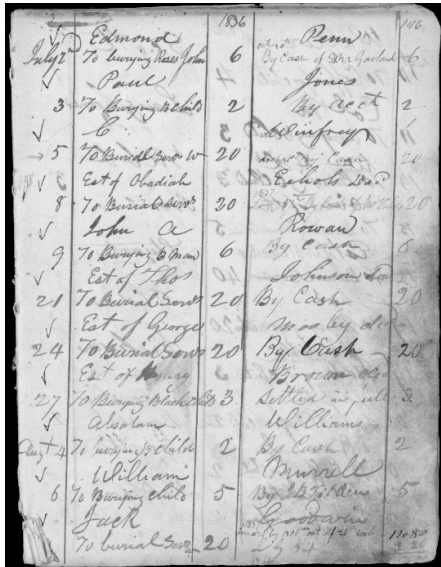 1836 146
Edmond Penn
July 2d To burying Roses John 6 By Cash of Garland 6
Paul Jones
3 To Burying B Child 2 By acct 2
C. Winfrey
5 To Burial Servs W 20 by Cash 20
Est of Obadiah Echols Decd
8 To Burial Servs 20 20
John A Rowan
9 To Burying B Man 6 By Cash 6
Est of Thos Johnson
21 To Burial Servs 20 By Cash 20
Est of George
24 To Burial Servs 20 By Cash 20
Est of Henry Brown
27 To Burying Black child 3 Settled in full 3
Absalam Williams
Augt 4 To burying B Child 2 By Cash 2
William Murrell
6 To Burying Child 5 By 5
Jack Goodwin
To burial Servs 20